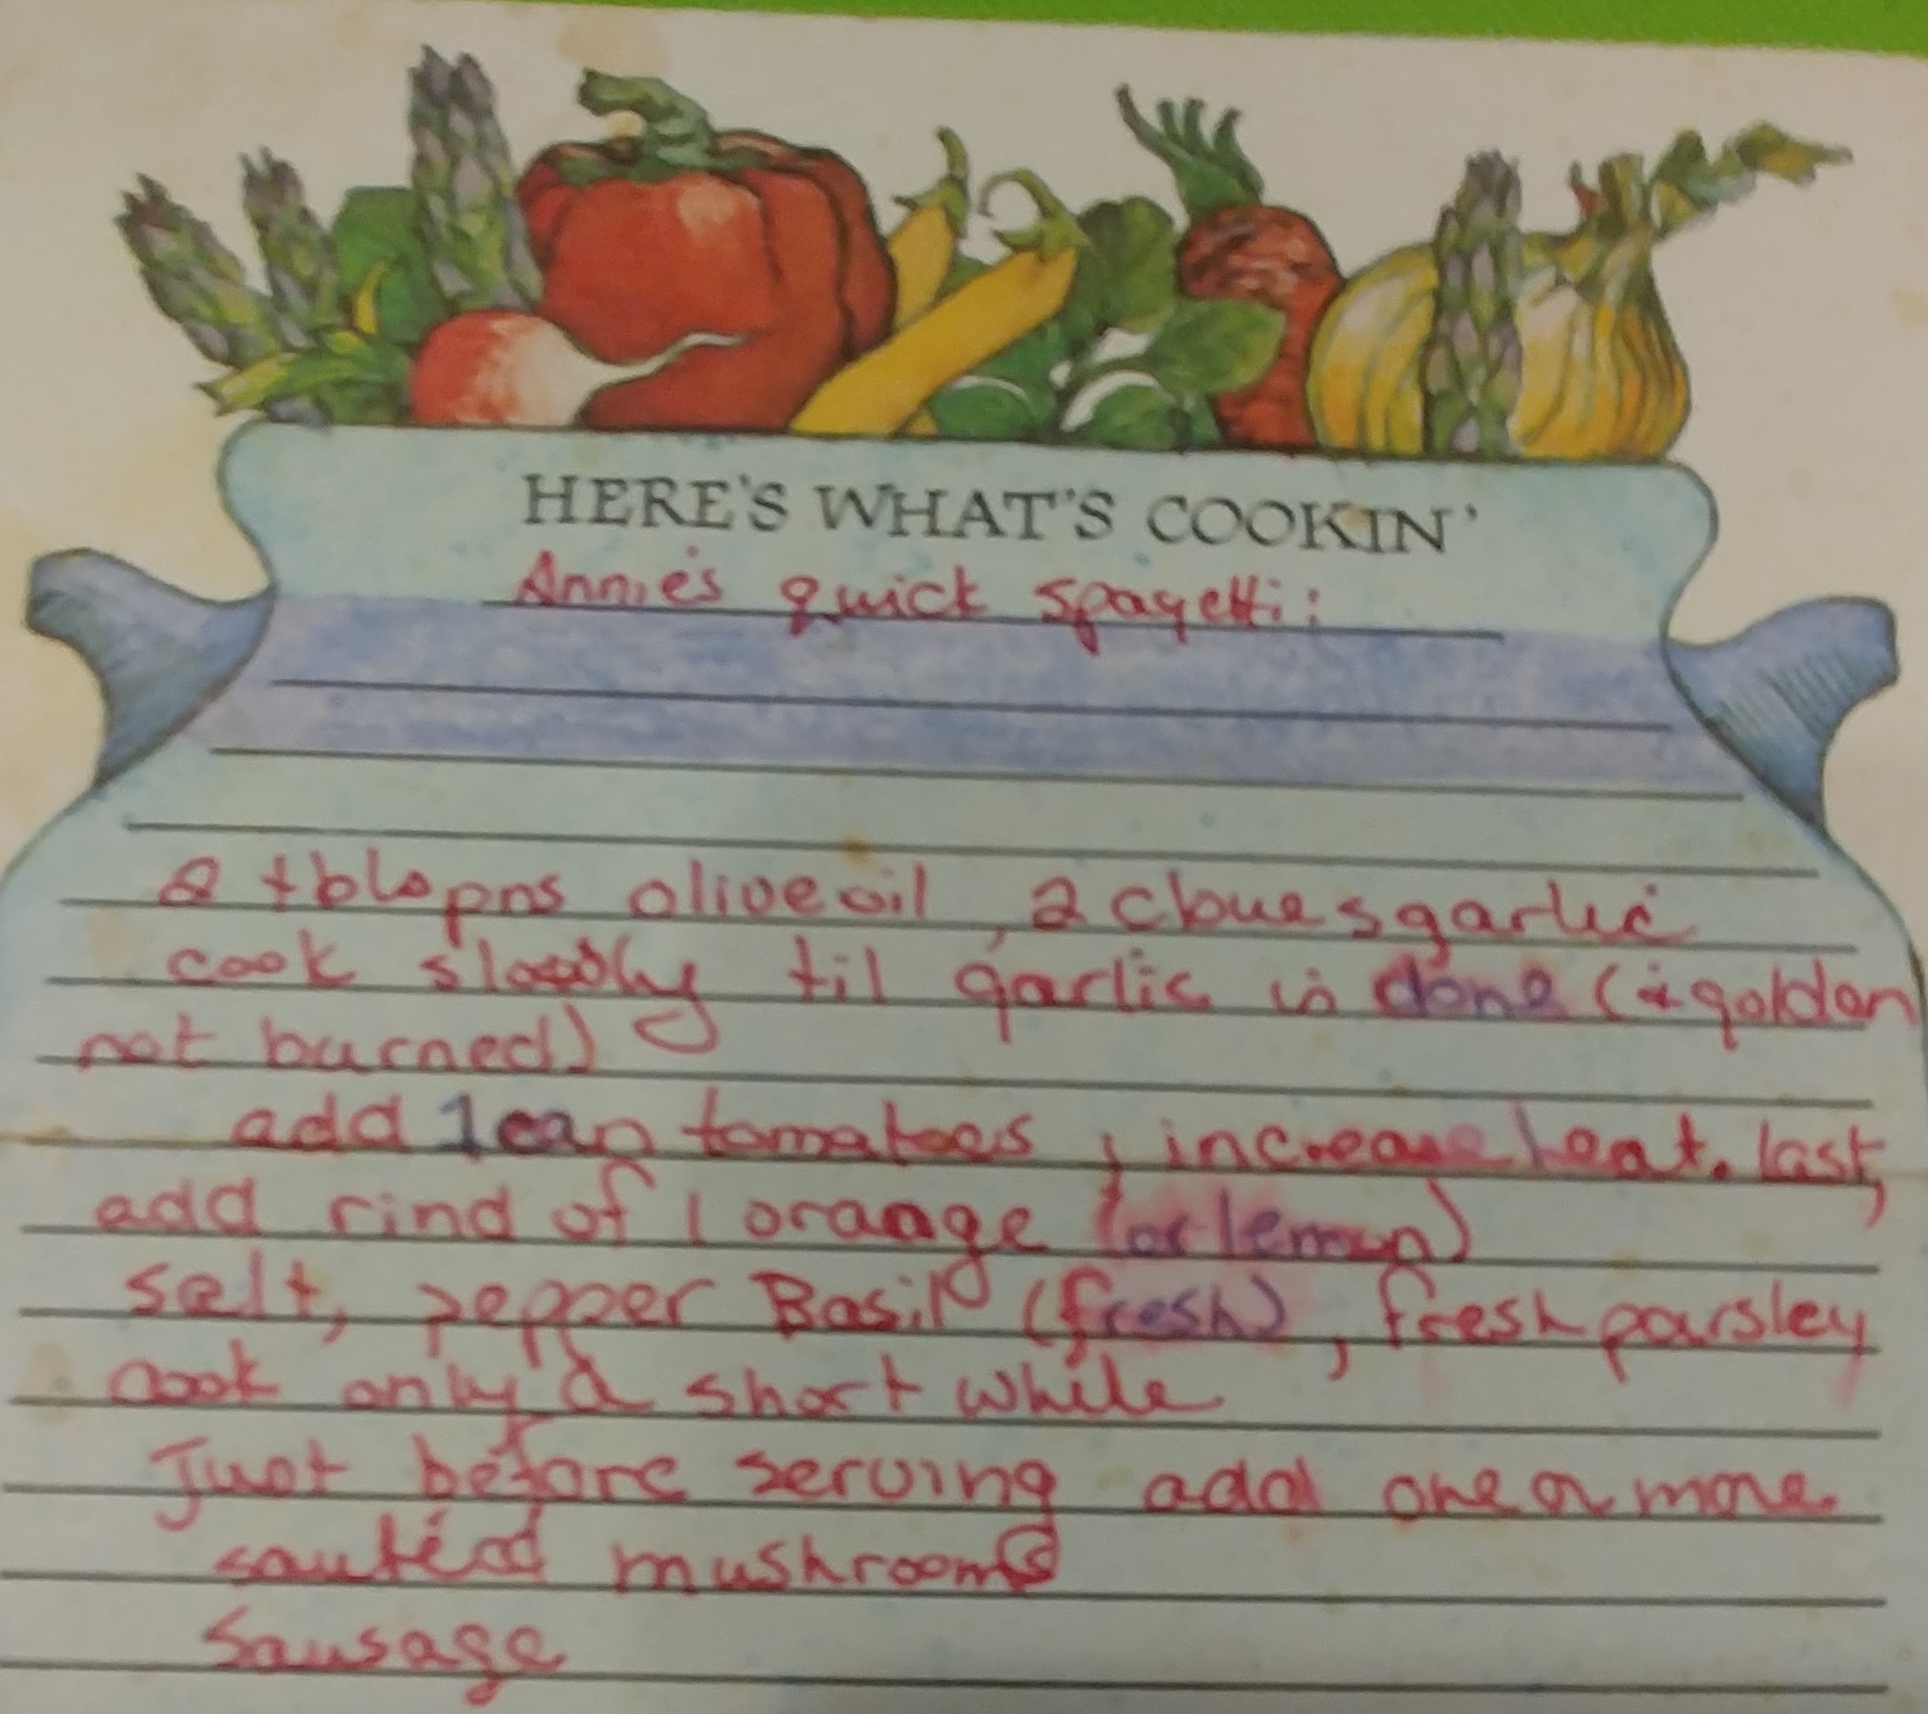 HERE'S WHAT'S COOKIN'
Annie's quick spagetti:
2 tblspns olive oil, 2 cloves garlic
cook slowly til garlic is done (& golden
not burned)
add 1 can tomatoes, increase heat. last,
add rind of 1 orange (or lemon)
salt, pepper Basil (fresh), fresh parsley
cook only a short while
Just before serving add one or more
sautéed mushrooms
Sausage